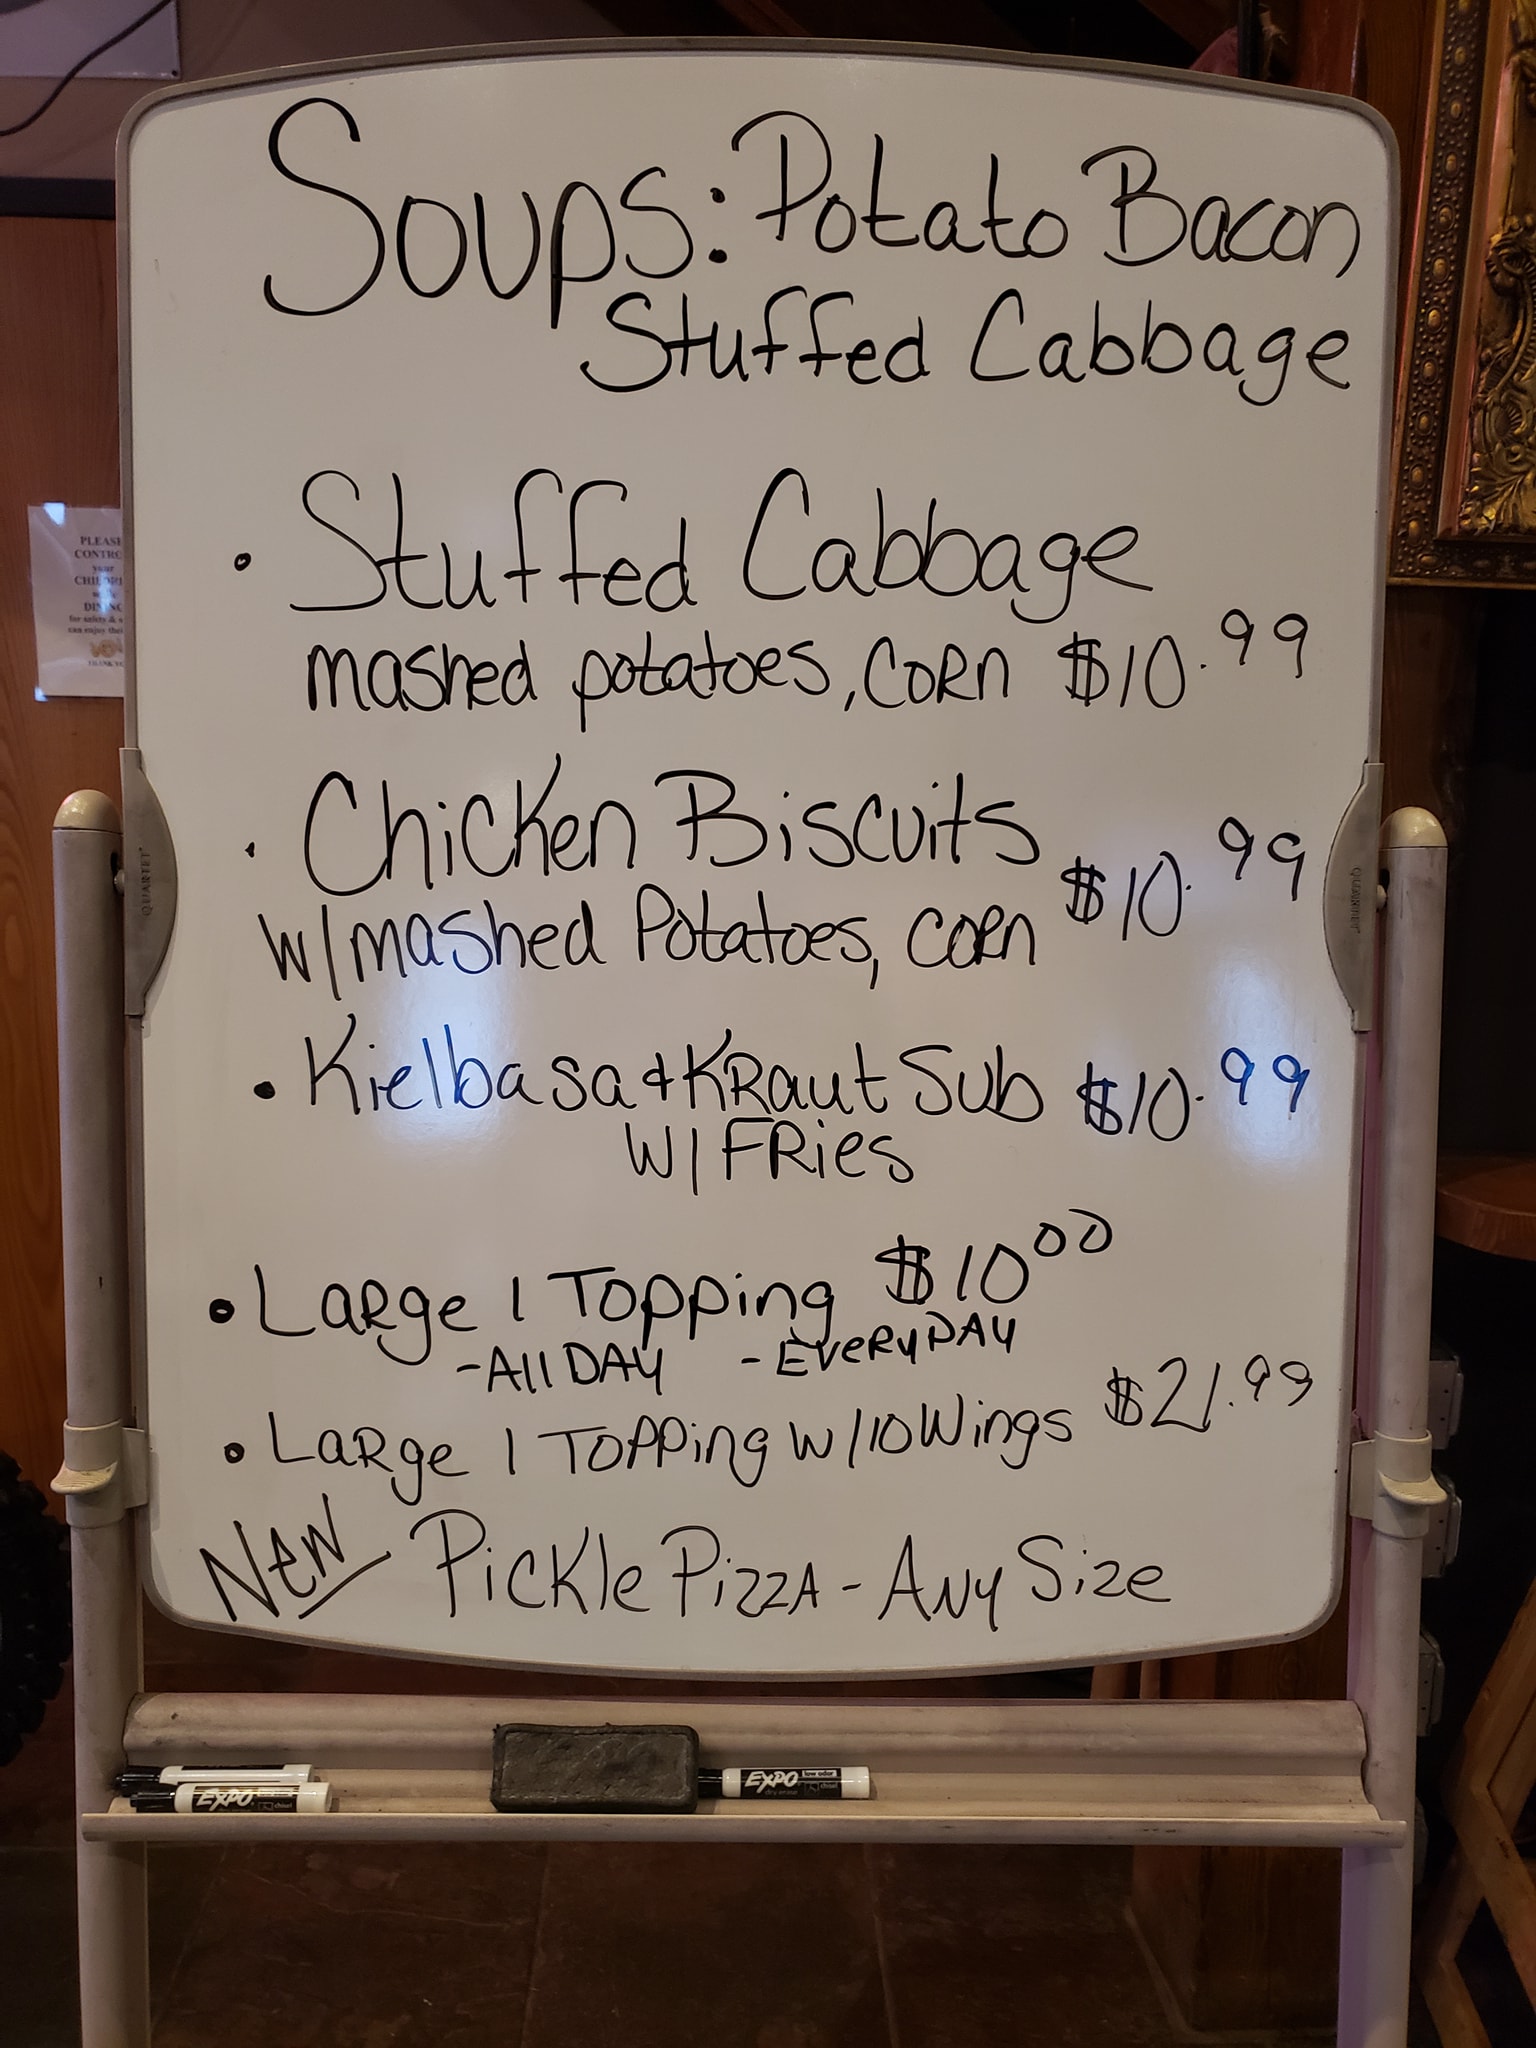 Soups: Potato Bacon
Stuffed Cabbage
• Stuffed Cabbage
mashed potatoes, CORN $10.99
• Chicken Biscuits
w/mashed Potatoes, CORN $10.99
• Kielbasa & KRaut Sub $10.99
W/ FRies
• LARge 1 Topping $10.00
-All DAY -EveRyDAY
• LARge 1 Topping w/10 Wings $21.99
New PicKle PizzA - ANy Size
QUARTET
QUARTET
PLEASE
your
DINING
for safety &
can enjoy
THANK YOU
EXPO
chisel
EXPO low odor
dry erase chisel